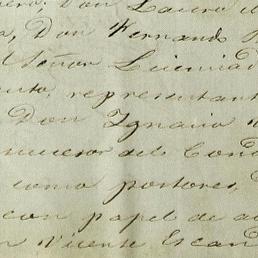 Don Laura d
, Don Fernando
l Señor Licenciad
representant
Don Ignacio
del Con
como postores,
con papel de a
n Vicente Escan